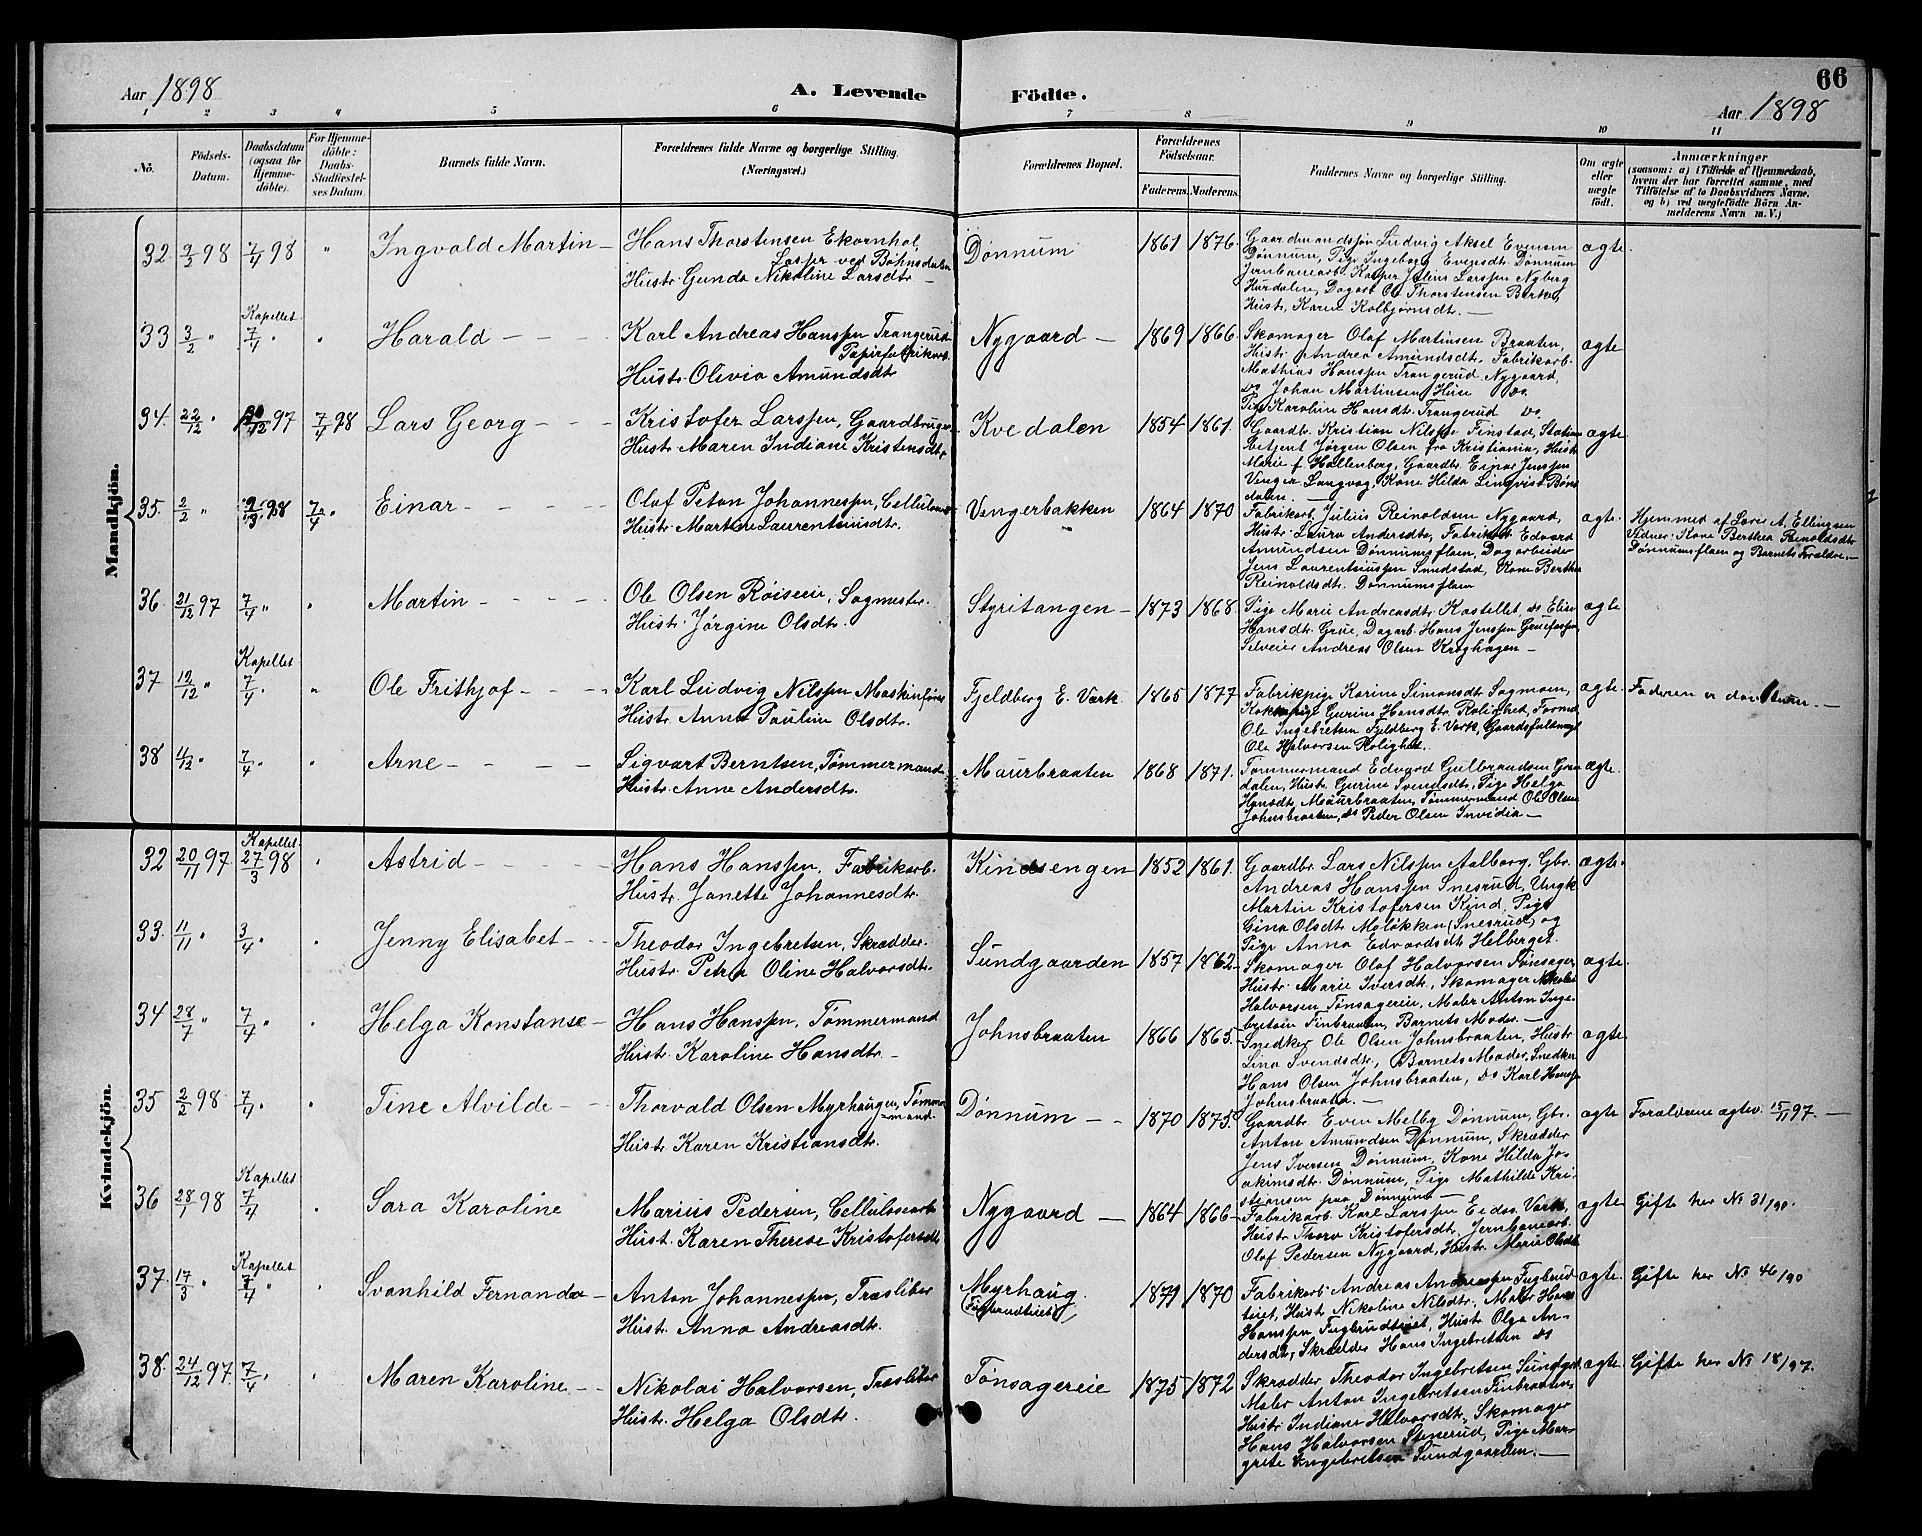 66
Aar 1898
A. Levende
Födte.
Aar 1898
1 2 3 4 5 6 7 8 9 10 11
No.
Födsels-Datum.
Daabsdatum (ogsaa for Hjemme-döbte).
For Hjemme-döbte: Daabs-Stadfæstel-ses Datum.
Barnets fulde Navn.
Forældrenes fulde Navne og borgerlige Stilling. (Næringsvei.)
Forældrenes Bopæl.
Forældrenes Födselsaar.
Faderens. Moderens.
Faddernes Navne og borgerlige Stilling.
Om ægte eller uægte födt.
Anmærkninger
(saasom: a) i Tilfælde af Hjemmedaab,
hvem der har forrettet samme, med
Tilföielse af to Daabsvidners Navne,
og b) ved uægtefödte Börn An-
melderens Navn m. V.)
Mandkjön.
32. 2/2 98 7/4 98 " Ingvald Martin – Hans Thorstensen Ekornhol,
Løsjer ved Bøhnsdalen
Hustr. Gunda Nikoline Larsdtr. –
Dønnum 1861 1876.
Gaardmandssøn Ludvig Aksel Evensen
Dønnum, Pige Ingeborg Evensdt. Dønnum
Jernbanearb. Kasper Julius Larssen Nyberg
Hurdalen, Dagarb. Ole Thorstensen Berker,
Hustr. Karen Kolbjørnsdt. –
ægte.
33 3/2 " Kapellet 7/4 " " Harald – – – Karl Andreas Hanssen Trangerud
Papirfabrikarb.
Hustr. Olivia Amundsdtr.
Nygaard – 1869 1866.
Skomager Olaf Martinsen Braaten,
Hustr. Andrea Amundsdt. Fabrikarb.
Mathias Hanssen Trangerud Nygaard,
do Johan Martinsen Hun do.
Pige Karoline Hansdt. Trangerud do
ægte
34. 22/12 " 97 7/4 98 Lars Georg – – – Kristofer Larssen, Gaardbruger
Hustr. Maren Indiane Kristensdtr.
Kvedalen 1854 1861.
Gaardbr. Kristian Nilssen Finstad, Stations
betjent Jørgen Olsen fra Kristiania, Hustr.
Marie f. Hallenberg, Gaardbr. Einar Jenssen
Venger Langvag, Kone Hilda Linqvist Bøns
dalen. –
ægte
35. 2/2 " 98 7/4 " Einar – – – – Olaf Petan Johannessen, Cellulosearb.
Hustr. Marthe Laurentiusdtr.
Vengerbakken 1864 1870
Fabrikarb. Julius Reinoldsen Nygaard,
Hustr. Laura Andersdtr, Fabrikarb. Edvard
Amundsen Dønnumsflaen, Dagarbeider
Jens Laurentiussen Smedstad, Kone Berthea
Reinoldsdtr. Dønnumsflaen
ægte.
Hjemmed. af Lovis A. Ellingsen
Vidner: Kone Berthea Reinoldsdtr
Dønnumsflaen og Barnets Forældre. –
36. 21/12 97 7/4 " " Martin – – – – Ole Olsen Røiseie, Sagmester.
Hustr. Jørgine Olsdtr.
Styritangen – 1873 1868
Pige Marie Andreasdtr. Kastellet, do Elise
Hansdtr. Grue, Dagarb. Hans Jenssen Gruefossen,
Selveier Andreas Olsen Kroghagen –
ægte
37. 12/12 " Kapellet 7/4 " " Ole Frithjof – – – Karl Ludvig Nilssen Maskinfører
Hustr. Anna Pauline Olsdtr.
Fjeldberg E. Værk 1865 1877
Fabrikpige Karine Simonsdt. Sagmoen,
Kokkepige Gurine Hansdtr. Rolighed, Formd.
Ole Ingebretsen Fjeldberg E. Værk, Gaardsfuldmægt.
Ole Halvorsen Rolighet.
ægte.
Faderen er døvstum. –
38 4/12 " 7/4 " " Arne – – – – Sigvart Berntsen, Tømmermand
Hustr. Anne Andersdtr.
Maurbraaten 1868 1871.
Tømmermand Edvard Gulbrandsen Grøn
dalen, Hustr. Gurine Svendsdtr., Pige Helga
Hansdt, Maurbraaten, Tømmermand Ole Olsen
Johnsbraaten, do Peder Olsen Invidia –
ægte.
Kvindekjön.
32 20/11 97 Kapellet 27/3 98 " Astrid – – – – Hans Hanssen. Fabrikarb.
Hustr. Janette Johannesdtr.
Kindsengen 1852 1861.
Gaardbr. Lars Nilssen Aalborg, Gbr.
Andreas Hanssen Snesrud, Ungk.
Martin Kristofersen Kind, Pige
Gina Olsdt. Meløkken (Snesrud) og
Pige Anna Edvardsdt Helberget.
ægte.
33. 11/11 " 3/4 " " Jenny Elisabet – – Theodor Ingebretsen, Skrædder.
Hustr. Petra Oline Halvorsdtr.
Sundgaarden 1857 1862
Skomager Olaf Halvorsen Tønsager,
Hustr. Marie Iversdt., Skomager Nikolai
Halvorsen Tønsagereie, Maler Anton Inge-
bretsen Finbraaten, Barnets Moder. –
ægte.
34 28/7 " 7/4 " " Helga Konstanse – Hans Hanssen. Tømmermand
Hustr. Karoline Hansdtr. –
Johnsbraaten 1866 1865.
Snedker Ole Olsen Johnsbraaten, Hustr.
Lina Svendsdtr, Barnets Moder, Snedker
Hans Olsen Johnsbraaten, do Karl Hanssen
Johnsbraaten. –
ægte.
35 2/2 98. 7/4 " " Tine Alvilde – – Thorvald Olsen Myrhaugen, Tømmer-
mand.
Hustr. Karen Kristiansdtr.
Dønnum – 1870 1875.
Gaardbr. Even Melby Dønnum, Gbr.
Anton Amundsen Dønnum, Skrædder
Jens Iversen Dønnum, Kone Hilda Jo-
akimsdt. Dønnum, Pige Mathilde Kri-
stiansen paa Dønnum –
ægte
Forældrene ægtev. 15/11 97. –
36 28/1 98 Kapellet 7/4 " Sara Karoline Marius Pedersen, Cellulosearb
Hustr. Karen Therese Kristofersdtr
Nygaard – 1864 1866
Fabrikarb. Karl Larssen Eidsv. Værk,
Hustr. Thora Kristofersdt, Jernbanearb.
Olaf Pedersen Nygaard, Hustr. Marie Olsdt.
ægte
Gifte her No 31/90.
37. 17/3 " Kapellet 7/4 " " Svanhild Fernanda – Anton Johannessen, Træsliber
Hustr. Anna Andreasdtr.
Myrhaug. 1879 1870
Fabrikarb. Andreas Andreassen Fuglerud
teiet, Hustr. Nikoline Nilsdtr. Maler Hans
Hanssen, Fuglerudteiet, Hustr. Olga An-
dersdt, Skrædder Hans Ingebretsen do
ægte.
Gifte her No. 46/90
38. 24/12 97. 7/4 " " Maren Karoline. – – Nikolai Halvorsen, Træsliber
Hustr. Helga Olsdtr.
Tønsagereie 1875 1872
Skrædder Theodor Ingebretsen Sundgrd.
Maler Anton Ingebretsen Finbraaten,
Hustr. Indiane Halvorsdtr., Skomager
Hans Halvorsen Stenerud, Pige Mar-
grete Ingebretsen Sundgaarden. –
ægte.
Gifte her No 18/97.